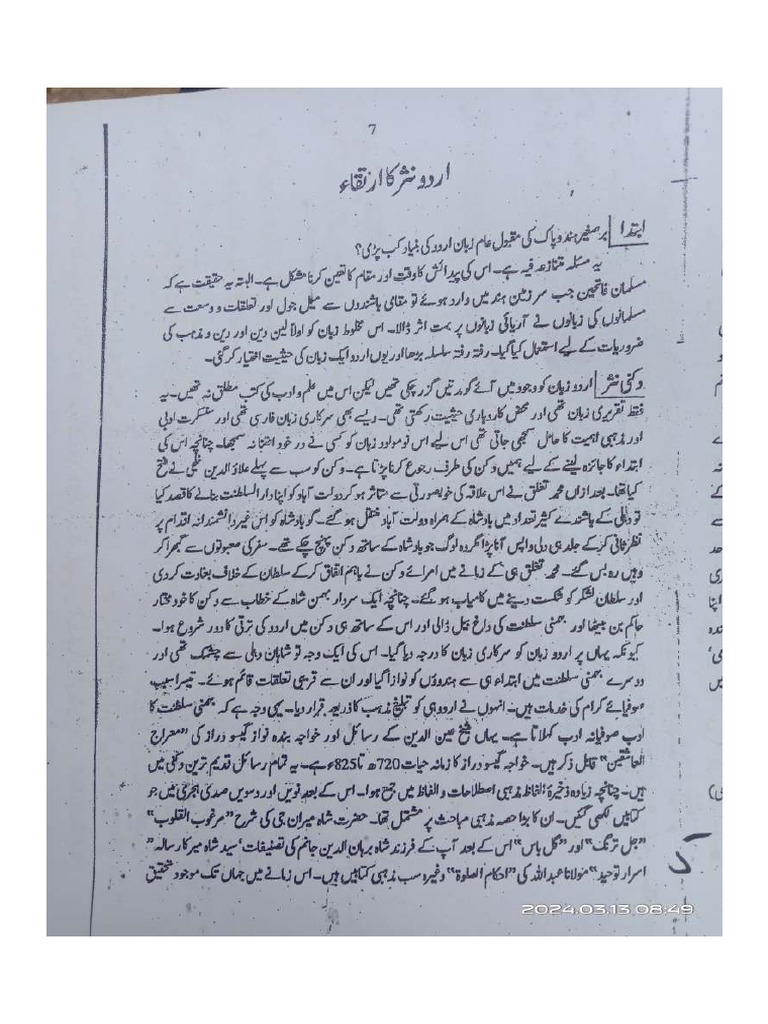 7
اردو نثر کا ارتقاء
ابتدا برصغیر ہندو پاک کی مقبول عام زبان اردو کی بنیاد کب پڑی؟
یہ مسئلہ متنازعہ فیہ ہے۔ اس کی پیدائش کا وقت اور مقام کا تعین کرنا مشکل ہے۔ البتہ یہ حقیقت ہے کہ
مسلمان فاتحین جب سر زمین ہند میں وارد ہوئے تو مقامی باشندوں سے میل جول اور تعلقات و وسعت سے
مسلمانوں کی زبانوں نے آریائی زبانوں پر بہت اثر ڈالا۔ اس مخلوط زبان کو اولاً لین دین اور دین و مذہب کی
ضروریات کے لیے استعمال کیا گیا۔ رفتہ رفتہ سلسلہ بڑھا اور یوں اردو ایک زبان کی حیثیت اختیار کر گئی۔
دکنی نثر اردو زبان کو وجود میں آئے گو مدتیں گزر چکی تھیں لیکن اس میں علم و ادب کی کتب مطلق نہ تھیں۔ یہ
فقط تقریری زبان تھی اور محض کاروباری حیثیت رکھتی تھی۔ ویسے بھی سرکاری زبان فارسی تھی اور سنسکرت ادبی
اور مذہبی اہمیت کا حامل سمجھی جاتی تھی اس لیے اس نومولود زبان کو کسی نے در خود اعتنا نہ سمجھا۔ چنانچہ اس کی
ابتداء کا جائزہ لینے کے لیے ہمیں دکن کی طرف رجوع کرنا پڑتا ہے۔ دکن کو سب سے پہلے علاؤ الدین خلجی نے فتح
کیا تھا۔ بعد ازاں محمد تغلق نے اس علاقہ کی خوبصورتی سے متاثر ہو کر دولت آباد کو اپنا دار السلطنت بنانے کا قصد کیا
تو دہلی کے باشندے کثیر تعداد میں بادشاہ کے ہمراہ دولت آباد منتقل ہو گئے۔ گو بادشاہ کو اس غیر دانشمندانہ اقدام پر
نظر ثانی کر کے جلد ہی دلی واپس آنا پڑا مگر وہ لوگ جو بادشاہ کے ساتھ دکن پہنچ چکے تھے۔ سفر کی صعوبتوں سے گھبرا کر
وہیں رہ بس گئے۔ محمد تغلق ہی کے زمانے میں امرائے دکن نے باہم اتفاق کر کے سلطان کے خلاف بغاوت کر دی
اور سلطان لشکر کو شکست دینے میں کامیاب ہو گئے۔ چنانچہ ایک سردار بہمن شاہ کے خطاب سے دکن کا خود مختار
حاکم بن بیٹھا اور بہمنی سلطنت کی داغ بیل ڈالی اور اس کے ساتھ ہی دکن میں اردو کی ترقی کا دور شروع ہوا۔
کیونکہ یہاں پر اردو زبان کو سرکاری زبان کا درجہ دیا گیا۔ اس کی ایک وجہ تو شاہان دہلی سے چشمک تھی اور
دوسرے بہمنی سلطنت میں ابتداء ہی سے ہندوؤں کو نوازا گیا اور ان سے قریبی تعلقات قائم ہوئے۔ تیسرا سبب
صوفیائے کرام کی خدمات ہیں۔ انہوں نے اردو ہی کو تبلیغ مذہب کا ذریعہ قرار دیا۔ یہی وجہ ہے کہ بہمنی سلطنت کا
ادب صوفیانہ ادب کہلاتا ہے۔ یہاں شیخ عین الدین کے رسائل اور خواجہ بندہ نواز گیسو دراز کی "معراج
العاشقین" قابل ذکر ہیں۔ خواجہ گیسو دراز کا زمانہ حیات 720ھ تا 825ء ہے۔ یہ تمام رسائل قدیم ترین دکنی میں
ہیں۔ چنانچہ زیادہ ذخیرۂ الفاظ مذہبی اصطلاحات و الفاظ میں جمع ہوا۔ اس کے بعد نویں اور دسویں صدی ہجری میں جو
کتابیں لکھی گئیں۔ ان کا بڑا حصہ مذہبی مباحث پر مشتمل تھا۔ حضرت شاہ میران جی کی شرح "مرغوب القلوب"
"جل ترنگ" اور "گل باس" اس کے بعد آپ کے فرزند شاہ برہان الدین جانم کی تصنیفات' سید شاہ میر کا رسالہ "
اسرار توحید" مولانا عبداللہ کی "احکام الصلوۃ" وغیرہ سب مذہبی کتابیں ہیں۔ اس زمانے میں جہاں تک موجود تحقیق
2024.03.13 08:49